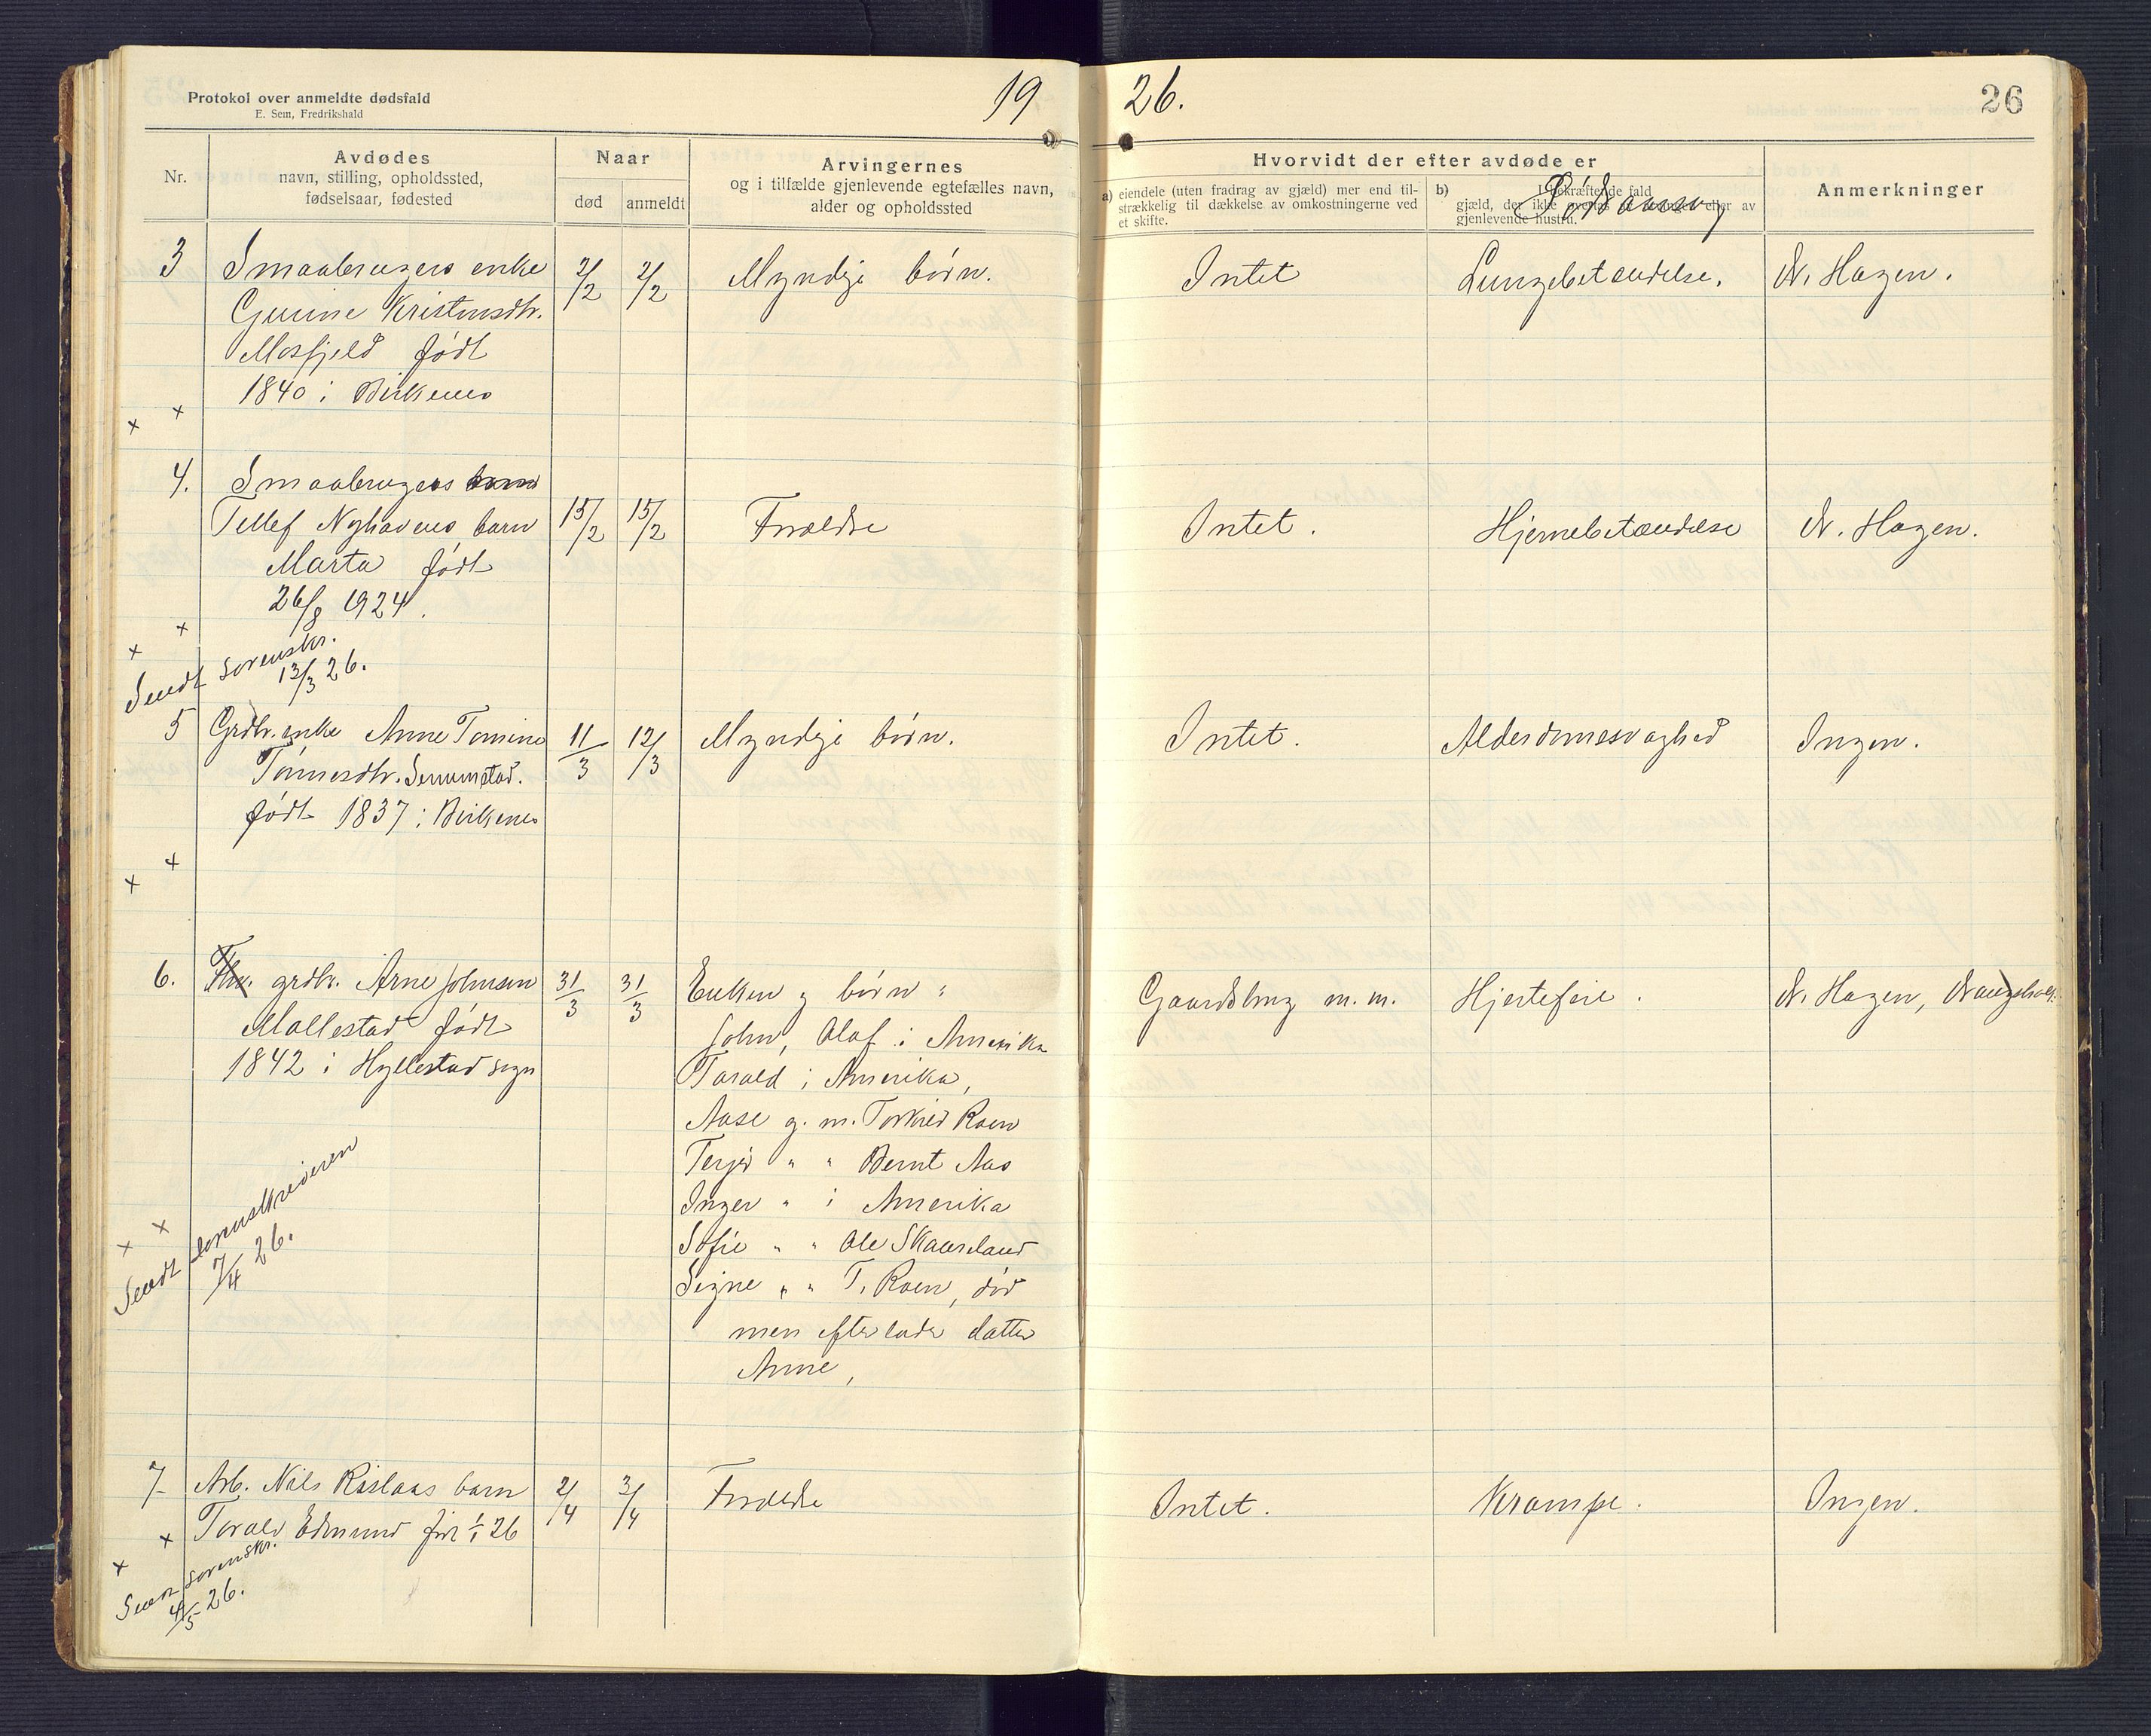 Protokol over anmeldte dødsfald
E. Sem, Fredrikshald
19
26.
26
Nr.
Avdødes
navn, stilling, opholdssted,
fødselsaar, fødested
Naar
død
anmeldt
Arvingernes
og i tilfælde gjenlevende egtefælles navn,
alder og opholdssted
Hvorvidt der efter avdøde er
a) eiendele (uten fradrag av gjæld) mer end til-
strækkelig til dækkelse av omkostningerne ved
et skifte.
b) I bekræftende fald
gjæld, der ikke overtas av arvinger eller av
gjenlevende hustru.
Dødsaarsag
Anmerkninger
3 Smaabrugers enke 2/2 2/2 Myndige børn. Intet Lungebetændelse. N. Hagen.
Gunine Kristensdtr.
Mosfjeld født
1840 i Birkenes
x x
4. Smaabrugers barn
Tellef Nyhavens barn 15/2 15/2 Forældre Intet. Hjernebetændelse N. Hagen.
Marta født
26/8 1924.
x x
Sendt sorenskr.
13/3 26.
5 Grdbr. enke Anne Tomine 11/3 12/3 Myndige børn. Intet. Alderdomssvaghed Ingen.
Tønnesdtr. Senumstad.
født 1837 i Birkenes
x x
6. grdbr. Arne Johnsen 31/3 31/3 Enken g børn: Gaardsbrug m. m. Hjertefeil. N. Hagen,
Mollestad født John, Olaf i Amerika
1842 i Hyllestad sogn Tarald i Amerika,
Aase g. m. Torkild Roen
Terjer " " Bernt Aas
Inger " i Amerika
Sofie " " Ole Skaareland
Signe " " T. Roen, død
men efterlader datter
Anne,
x x
Sendt sorenskriveren
7/4 26.
7 Arb. Nils Rislaas barn 2/4 3/4 Forældre Intet. Krampe. Ingen.
Torald Edmund født 1/1 26
x x
Sendt sorenskr.
4/5 26.